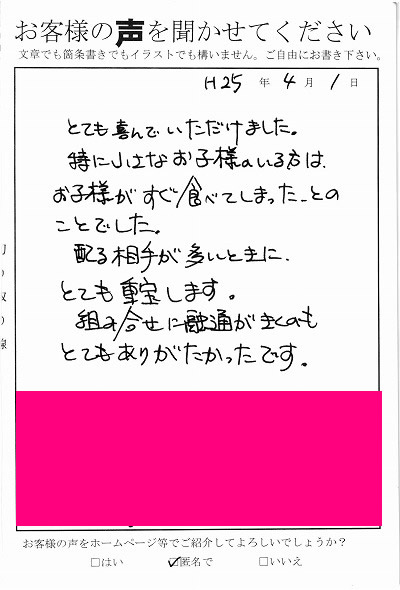 お客様の声を聞かせてください
文章でも箇条書きでもイラストでも構いません。ご自由にお書き下さい。
H25 年 4 月 1 日
とても喜んでいただけました。
特に小さなお子様のいる方は、
お子様がすぐ食べてしまった、との
ことでした。
配る相手が多いときに、
とても重宝します。
組み合せに融通がきくのも
とてもありがたかったです。
お客様の声をホームページ等でご紹介してよろしいでしょうか?
□はい ☑匿名で □いいえ